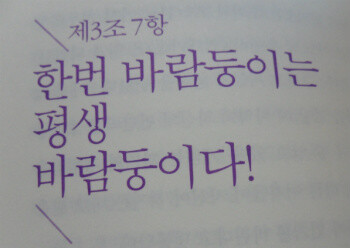 제3조 7항
한번 바람둥이는
평생
바람둥이다!